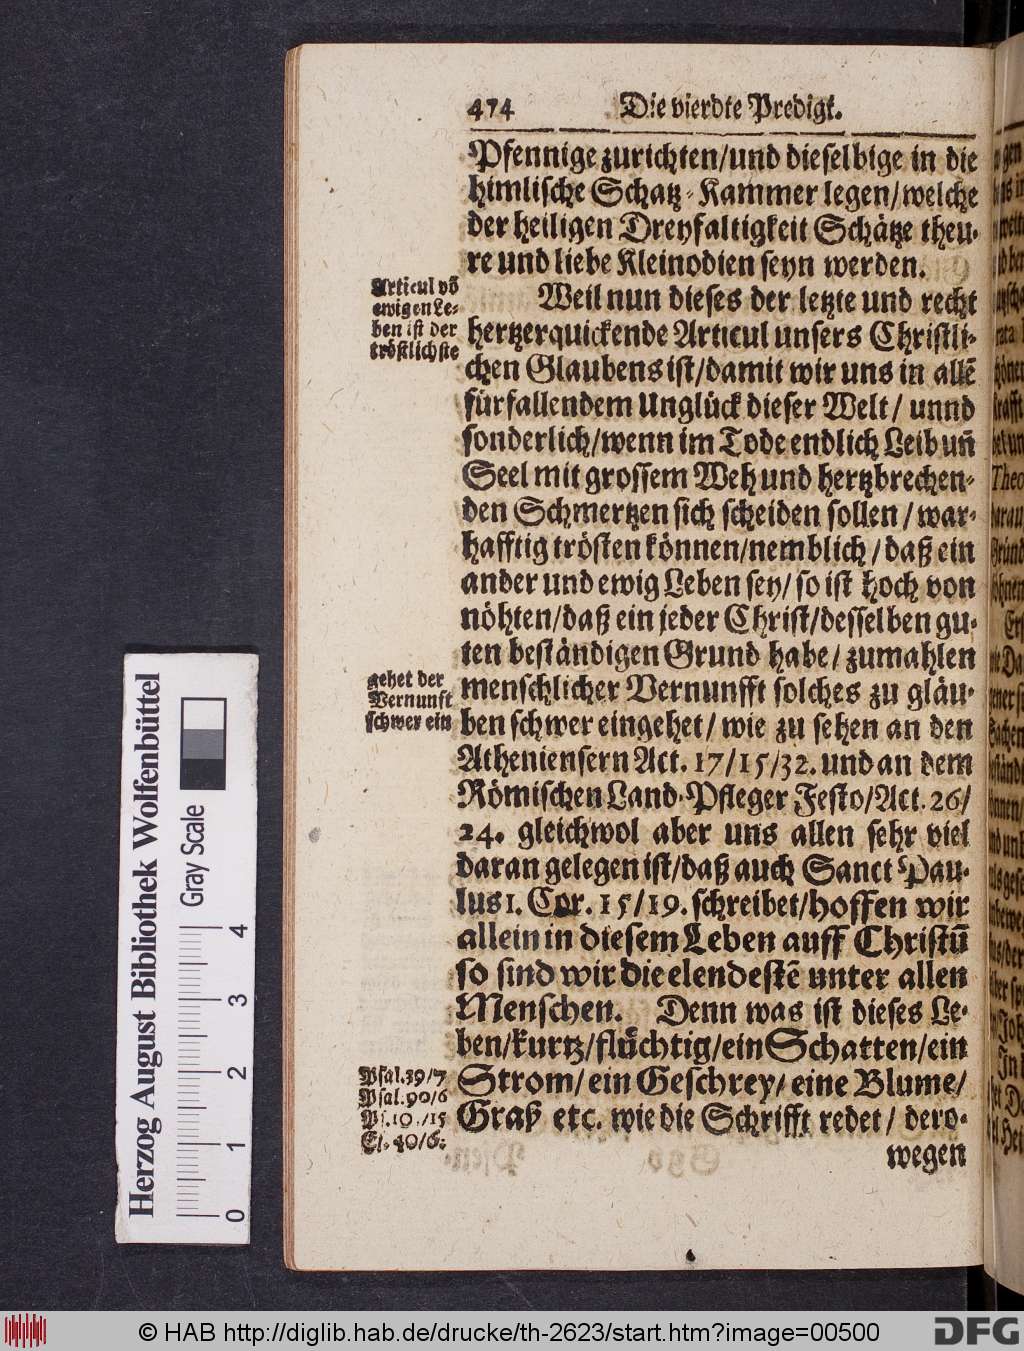 474 Die vierdte Predigt.
Pfennige zurichten/und dieselbige in die
himlische Schatz-Kammer legen/welche
der heiligen Dreyfaltigkeit Schätze theu-
re und liebe Kleinodien seyn werden.
Articul võ
ewigen Le-
ben ist der
tröstlichste
Weil nun dieses der letzte und recht
hertzerquickende Articul unsers Christli-
chen Glaubens ist/damit wir uns in allẽ
fürfallendem Unglück dieser Welt/ unnd
sonderlich/wenn im Tode endlich Leib uñ
Seel mit grossem Weh und hertzbrechen-
den Schmertzen sich scheiden sollen/ war-
hafftig trösten können/nemblich/daß ein
ander und ewig Leben sey/ so ist hoch von
nöhten/daß ein jeder Christ/desselben gu-
ten beständigen Grund habe/ zumahlen
gehet der
Vernunft
schwer ein
menschlicher Vernunfft solches zu gläu-
ben schwer eingehet/ wie zu sehen an den
Atheniensern Act. 17/15/32. und an dem
Römischen Land-Pfleger Festo/Act. 26/
24. gleichwol aber uns allen sehr viel
daran gelegen ist/daß auch Sanct Pau-
lus 1. Cor. 15/19. schreibet/hoffen wir
allein in diesem Leben auff Christũ
so sind wir die elendestẽ unter allen
Menschen. Denn was ist dieses Le-
ben/kurtz/flüchtig/ein Schatten/ein
Psal.39/7
Psal.90/6
Ps.10./15
Es. 40/6.
Strom/ ein Geschrey/ eine Blume/
Graß etc. wie die Schrifft redet/ dero-
wegen
Herzog August Bibliothek Wolfenbüttel
Gray Scale
0 1 2 3 4
© HAB http://diglib.hab.de/drucke/th-2623/start.htm?image=00500
DFG